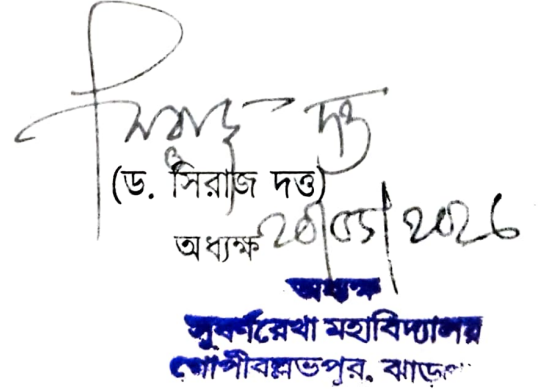 সিরাজ দত্ত
(ড. সিরাজ দত্ত)
অধ্যক্ষ 20/05/2026
অধ্যক্ষ
সুবর্ণরেখা মহাবিদ্যালয়
গোপীবল্লভপুর, ঝাড়